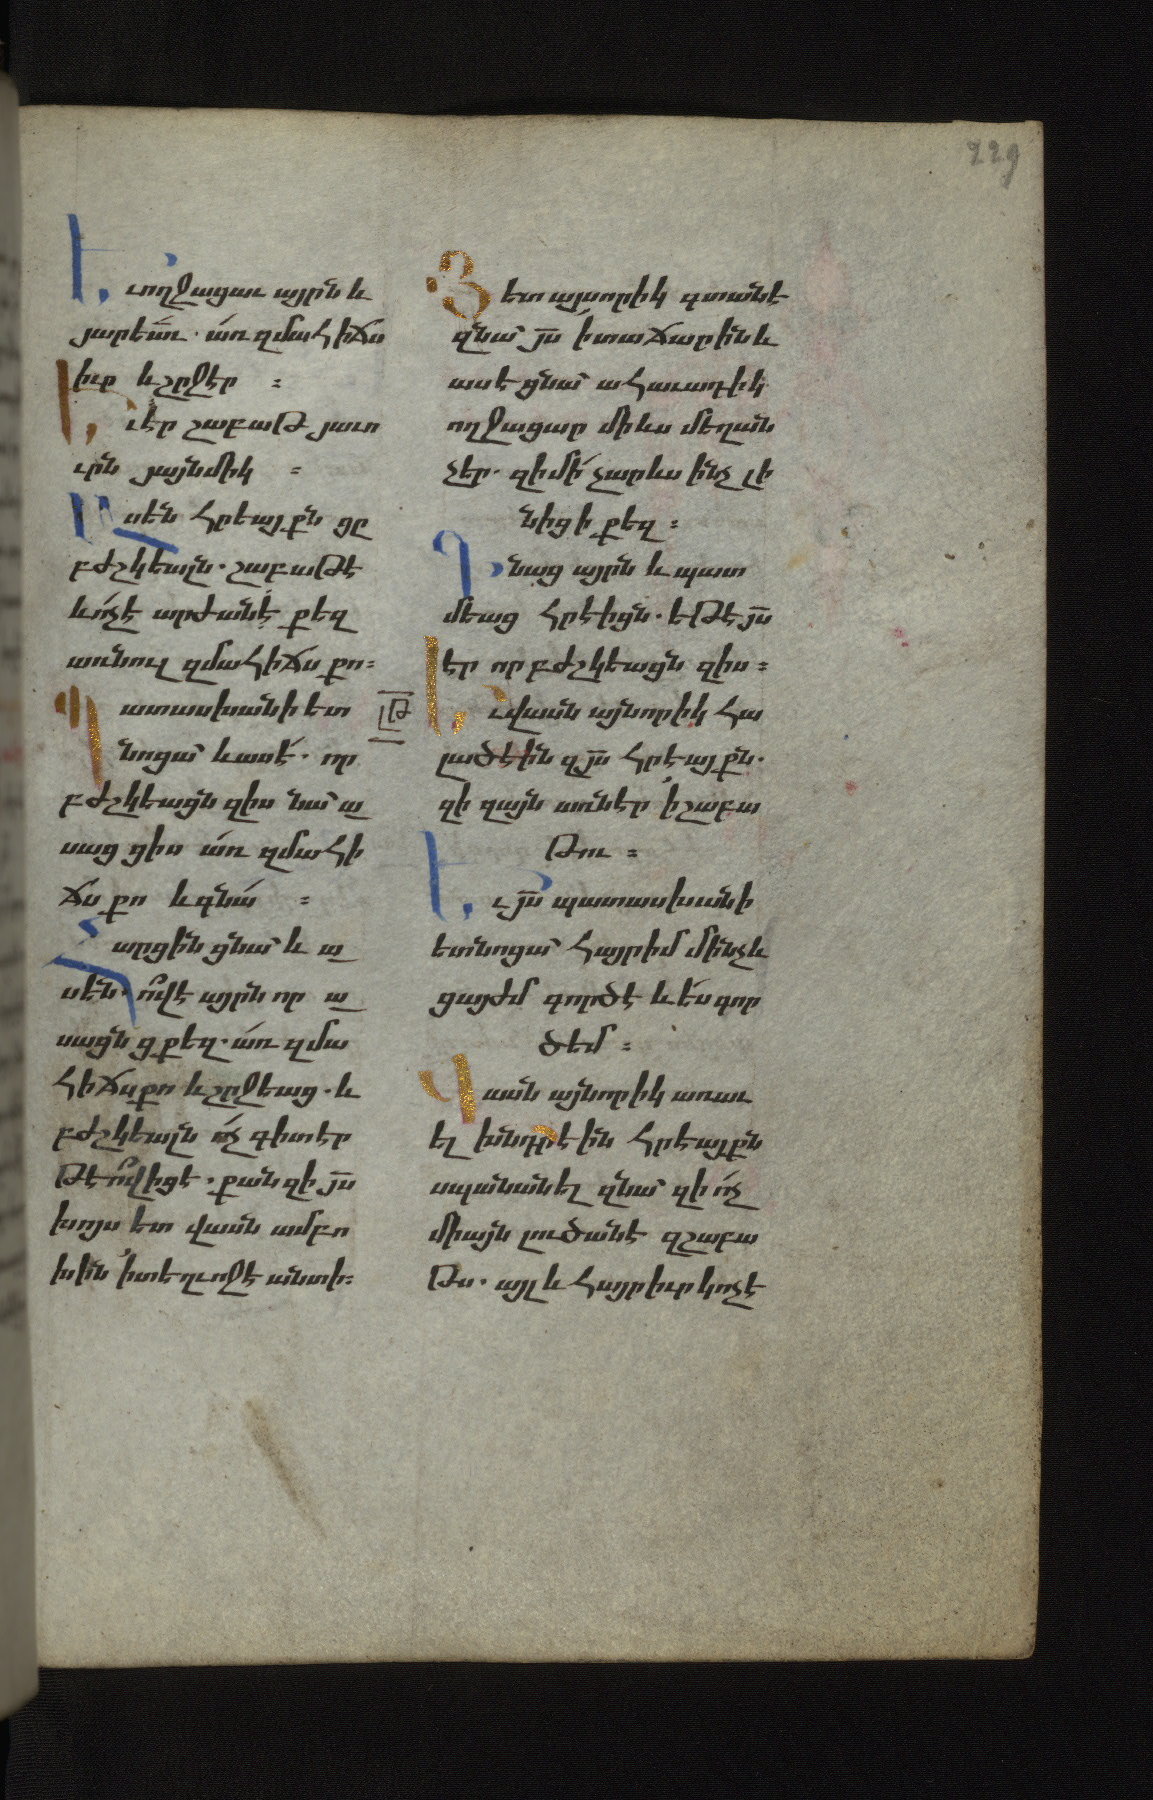 229
Եւ ողջացաւ այրն և
յարեաւ. առ զմահիճս
իւր և շրջէր :
Եւ էր շաբաթ յաւո
ւրն յայնմիկ :
Ասեն հրեայքն ցը
բժշկեալն. շաբաթ է
և ոչ է արժան է քեզ
առնուլ զմահիճս քո :
Պատասխանի ետ
նոցա և ասէ. որ
բժշկեացն զիս նա ա
սաց ցիս առ զմահի
ճս քո և գնա :
Հարցին ցնա և ա
սեն. ո՞վ է այրն որ ա
սացն ց քեզ. առ զմա
հիճս քո և շրջեաց. և
բժշկեալն ոչ գիտէր
թէ ո՞վ իցէ. քանզի յս
խոյս ետ վասն ամբո
խին ի տեղւոջէ անտի :
ԼԹ
Յետ այսորիկ գտանէ
զնա յս ի տաճարին և
ասէ ցնա ահաւադիկ
ողջացար մի ևս մեղան
չեր. զի մի չար ևս ինչ լի
նիցի քեզ :
Գնաց այրն և պատ
մեաց հրէիցն. եթէ յս
էր որ բժշկեացն զիս :
Եւ վասն այնորիկ հա
լածէին զյս հրէայքն.
զի զայն առնէր ի շաբա
թու :
Եւ յս պատասխանի
ետ նոցա հայր իմ մինչև
ցայժմ գործէ և ես գոր
ծեմ :
Վասն այնորիկ առաւ
ել խնդրէին հրէայքն
սպանանել զնա զի ոչ
միայն լուծանէ զշաբա
թս. այլ և հայր իւր կոչէ